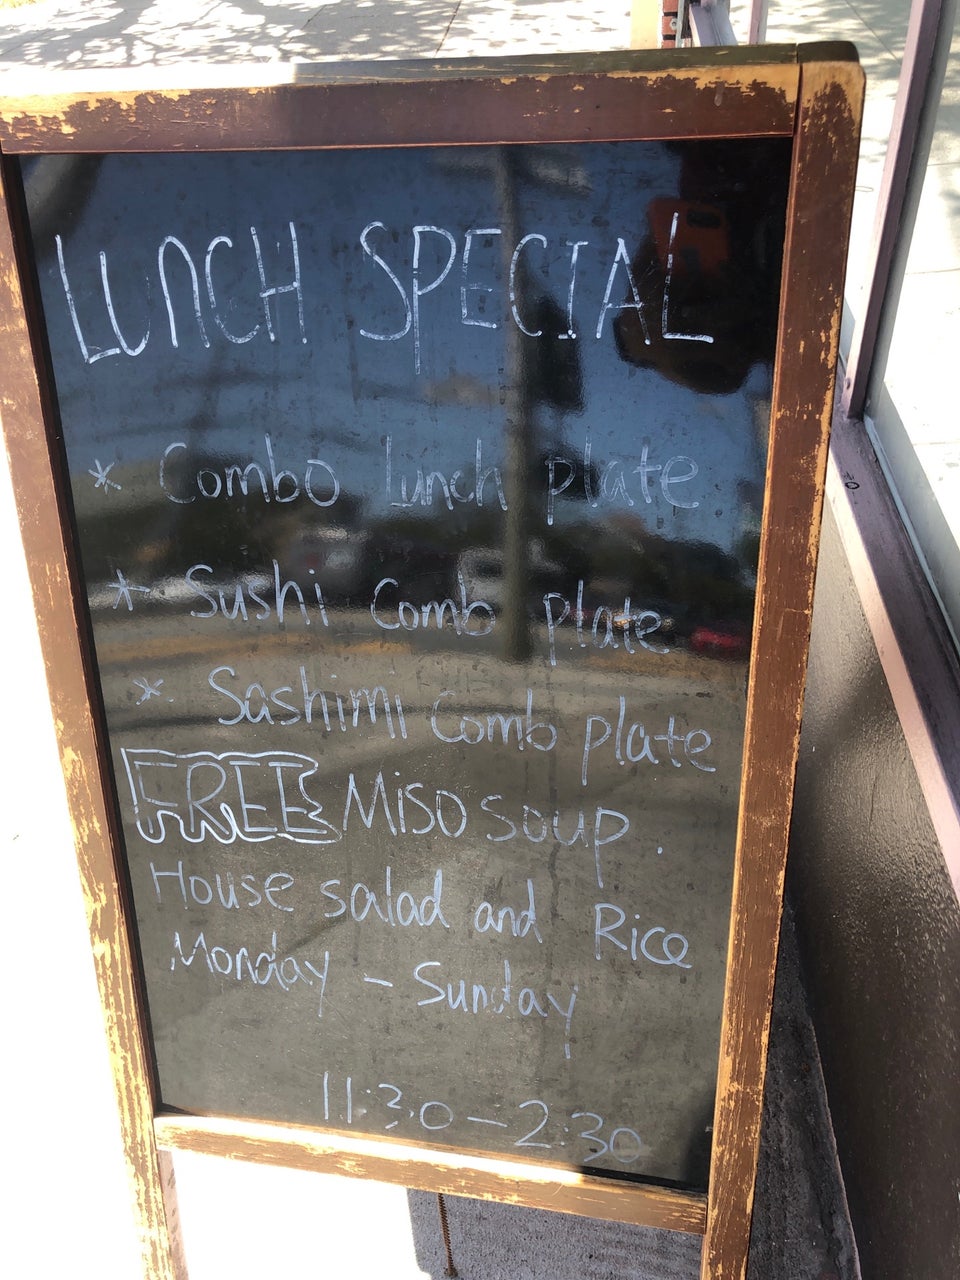 LUNCH SPECIAL
* Combo lunch plate
* Sushi Comb plate
* Sashimi Comb plate
FREE Miso soup.
House salad and Rice
Monday - Sunday
11:30 - 2:30